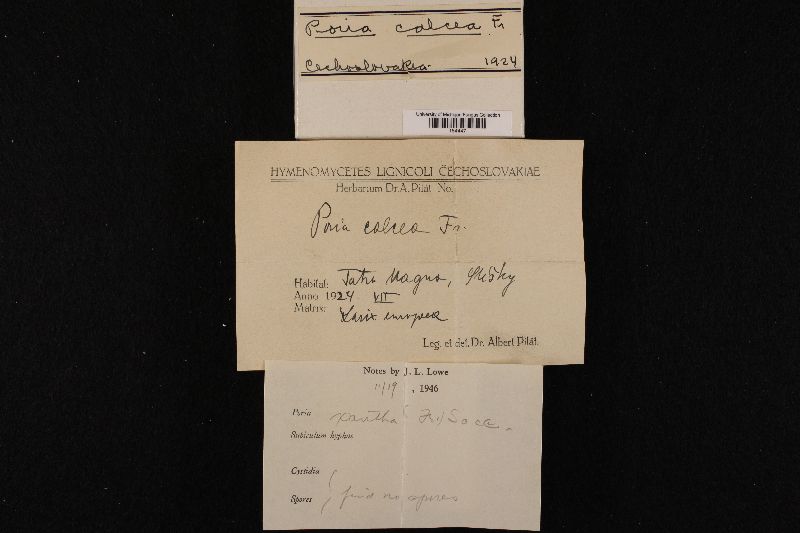 Poria calcea Fr
Cechoslovakia. 1924
University of Michigan Fungus Collection
HYMENOMYCETES LIGNICOLI ČECHOSLOVAKIAE
Herbarium Dr. A. Pilát No.
Poria calcea Fr.
Habitat: Tatra Magna,
Anno 1924 VII
Matrix: Larix europea
Leg. et det. Dr. Albert Pilát.
Notes by J. L. Lowe
11/19, 1946
Poria xantha (Fr.) Sacc.
Subiculum hyphae
Cystidia
Spores find no spores